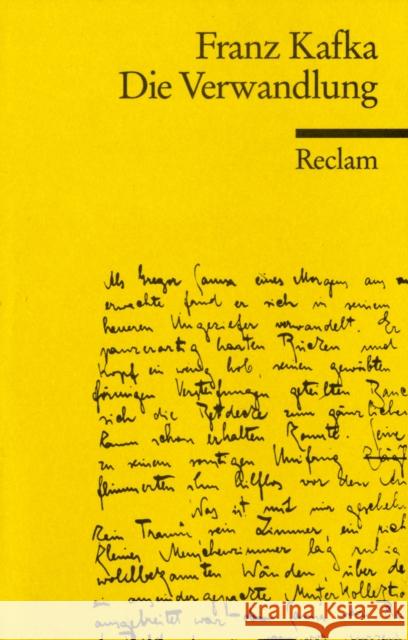 Franz Kafka
Die Verwandlung
Reclam
Als Gregor Samsa eines Morgens aus
erwachte fand er sich in seinem
heueren Ungeziefer verwandelt. Er
panzerartig harten Rücken und
Kopf ein wenig hob, seinen gewölbten
förmigen Versteifungen geteilten
sich die Bettdecke zum gänzlichen
kaum schon erhalten konnte. Seine
zu seinem sonstigen Umfang
flimmerten ihm hilflos vor den
Was ist mit mir geschehen
Kein Traum sein Zimmer, ein
kleines Menschenzimmer lag ruhig
wohlbekannten Wänden, über
auseinandergepackte Musterkollektion
ausgebreitet war